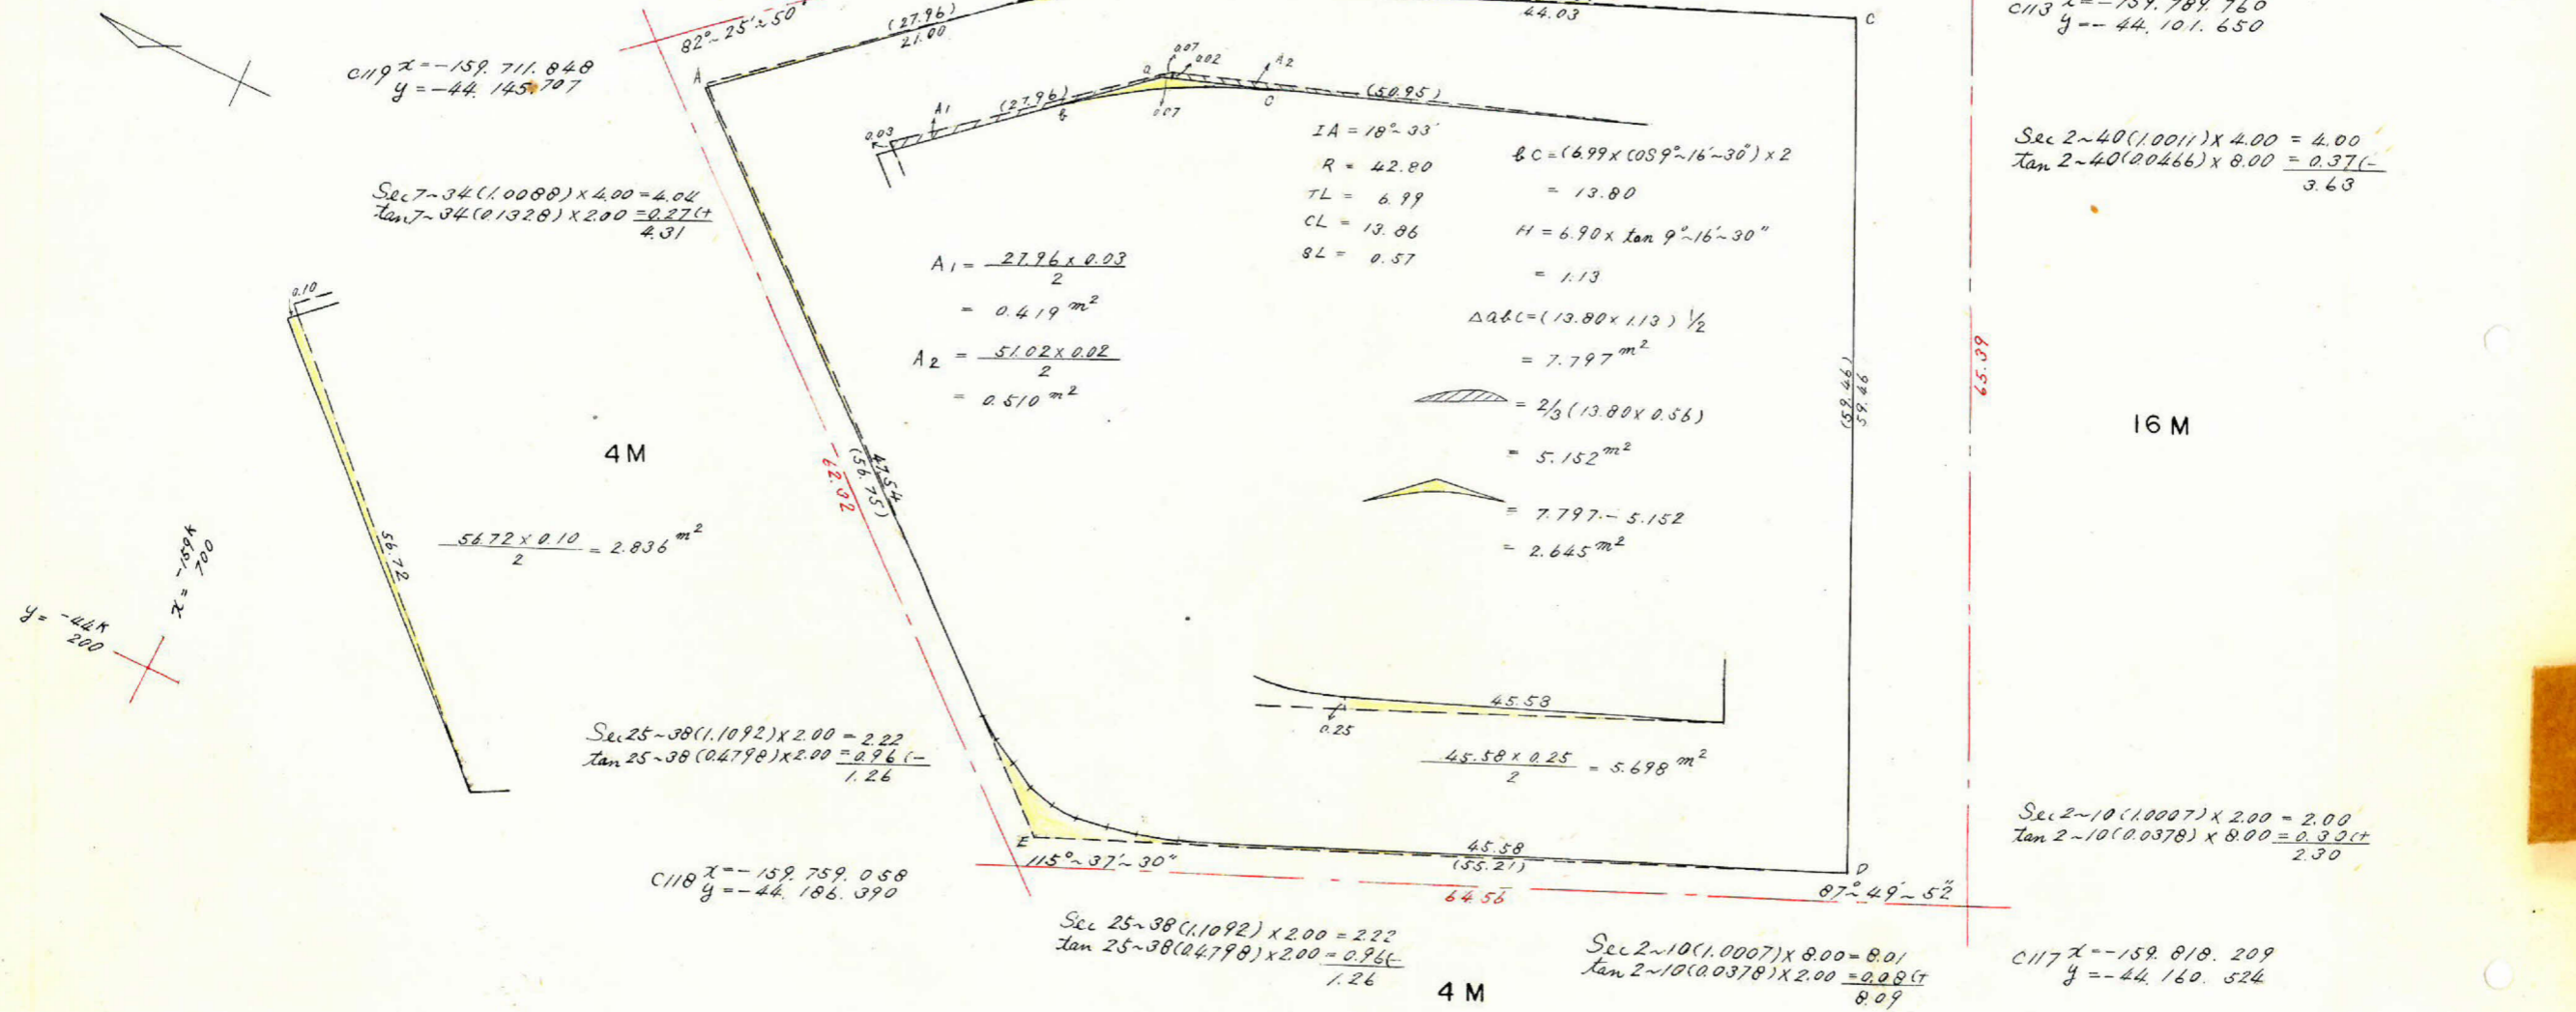 (27.96)
21.00
82°~25'~50"
A
44.03
C
C113 x=-159.789.760
y=-44.101.650
C119 x=-159.711.848
y=-44.145.707
0.07
0.02
A2
a
A1
(27.96)
b
0.07
C
(50.95)
0.03
IA=18°~33'
R = 42.80
TL = 6.99
CL = 13.86
SL = 0.57
bc=(6.99×COS9°~16'~30")×2
= 13.80
H=6.90×tan 9°~16'~30"
= 1.13
Δabc=(13.80×1.13) 1/2
= 7.797 m²
= 2/3(13.80×0.56)
= 5.152 m²
= 7.797-5.152
= 2.645 m²
Sec 2~40(1.0011)×4.00 = 4.00
tan 2~40(0.0466)×8.00 = 0.37(-
3.63
Sec7~34(1.0088)×4.00=4.04
tan7~34(0.1328)×2.00=0.27(+
4.31
A1= 27.96×0.03
2
= 0.419 m²
A2 = 51.02×0.02
2
= 0.510 m²
0.10
56.72
4M
56.72×0.10
2
= 2.836 m²
62.02
47.54
(56.75)
(59.46)
59.46
65.39
16M
x=-159K
700
y=-44K
200
45.58
0.25
45.58×0.25
2
= 5.698 m²
Sec25~38(1.1092)×2.00=2.22
tan 25~38(0.4798)×2.00=0.96(-
1.26
Sec2~10(1.0007)×2.00=2.00
tan 2~10(0.0378)×8.00=0.30(+
2.30
E
115°~37'~30"
45.58
(55.21)
64.56
D
87°~49'~52"
C118 x=-159.759.058
y=-44.186.390
Sec 25~38(1.1092)×2.00=2.22
tan 25~38(0.4798)×2.00=0.96(-
1.26
4M
Sec2~10(1.0007)×8.00=8.01
tan 2~10(0.0378)×2.00=0.08(+
8.09
C117 x=-159.818.209
y=-44.160.524